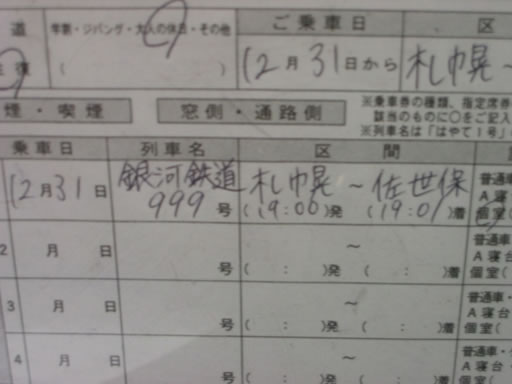 道 学割・ジパング・大人の休日・その他 ご乗車日 区
復 ( ) 12月31日から 札幌～
煙・喫煙 窓側・通路側 ※乗車券の種類、指定席券
該当のものに○をご記入
※列車名は「はやて1号」
乗車日 列車名 区間
12月31日 銀河鉄道 札幌～佐世保 普通車
999号 (19:00)発 (19:01)着 A寝
個室(
2 月 日 ～ 普通車
A寝台
号 ( : )発 ( : )着 個室(
3 月 日 ～ 普通車・
A寝台
号 ( : )発 ( : )着 個室(
4 月 日 ～ 普通車・
A寝台・
号 ( : )発 ( : )着 個室(